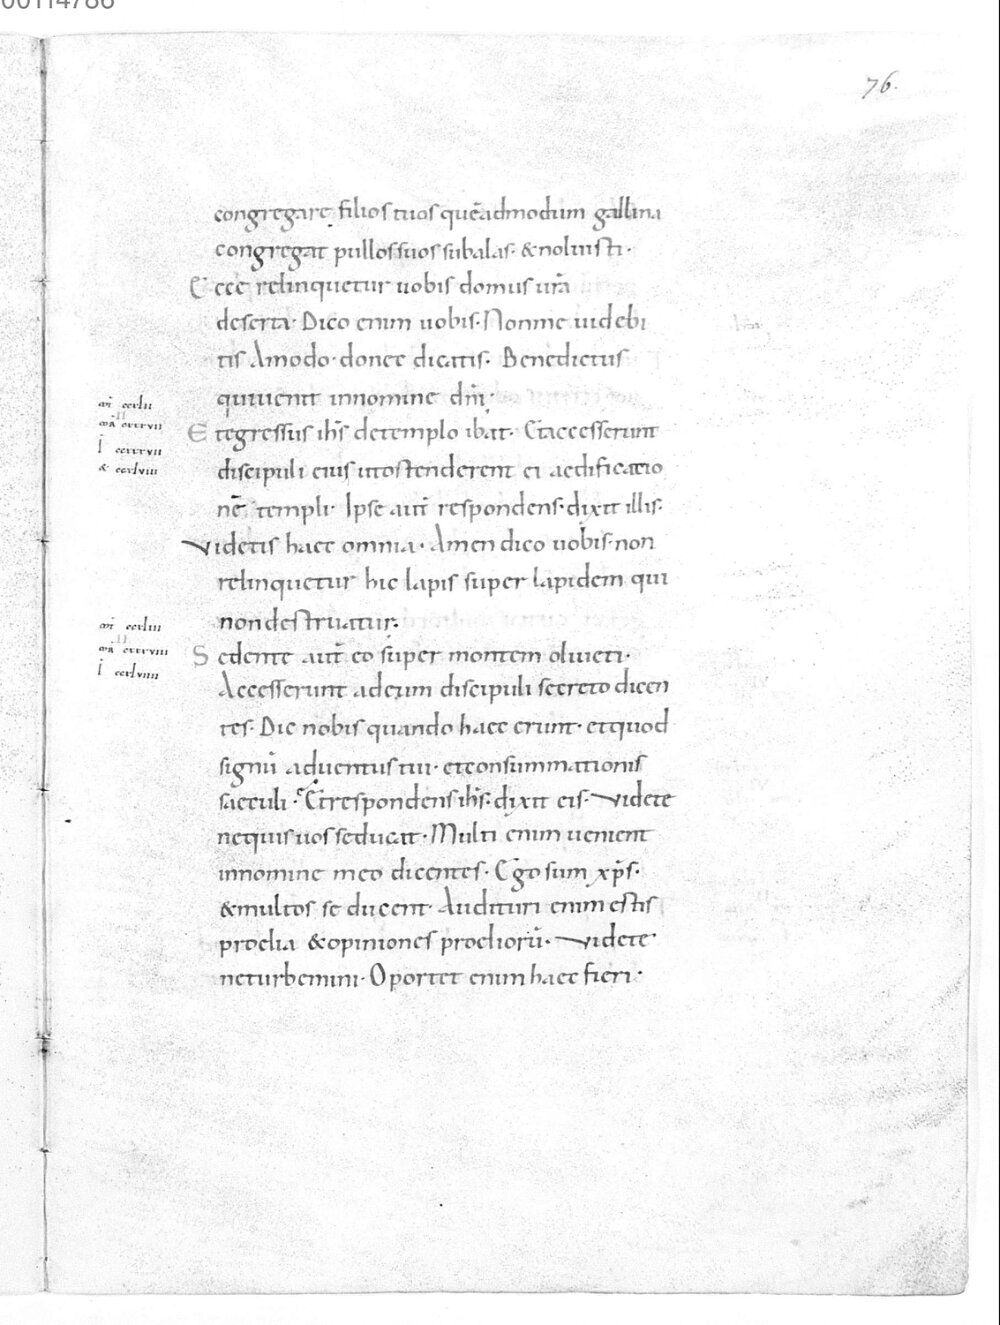 00114786
76.
congregare filios tuos quēadmodum gallina
congregat pullos suos sub alas· & noluisti·
Ecce relinquetur uobis domus ur̄a
deserta· Dico enim uobis· Non me uidebi
tis Amodo· donec dicatis· Benedictus
qui uenit in nomine dn̄i·
Et egressus ih̄s de templo ibat· Et accesserunt
discipuli eius ut ostenderent ei aedificatio
nē templi· Ipse aut̄ respondens· dixit illis·
Videtis haec omnia· Amen dico uobis· non
relinquetur hic lapis super lapidem qui
non destruatur·
Sedente aut̄ eo super montem oliueti·
Accesserunt ad eum discipuli secreto dicen
tes· Dic nobis quando haec erunt· et quod
signū aduentus tui· et consummationis
saeculi· Et respondens ih̄s· dixit eis· Videte
ne quis uos seducat· Multi enim uenient
in nomine meo dicentes· Ego sum xp̄s·
& multos seducent· Audituri enim estis
proelia & opiniones proeliorū· Videte
ne turbemini· Oportet enim haec fieri·